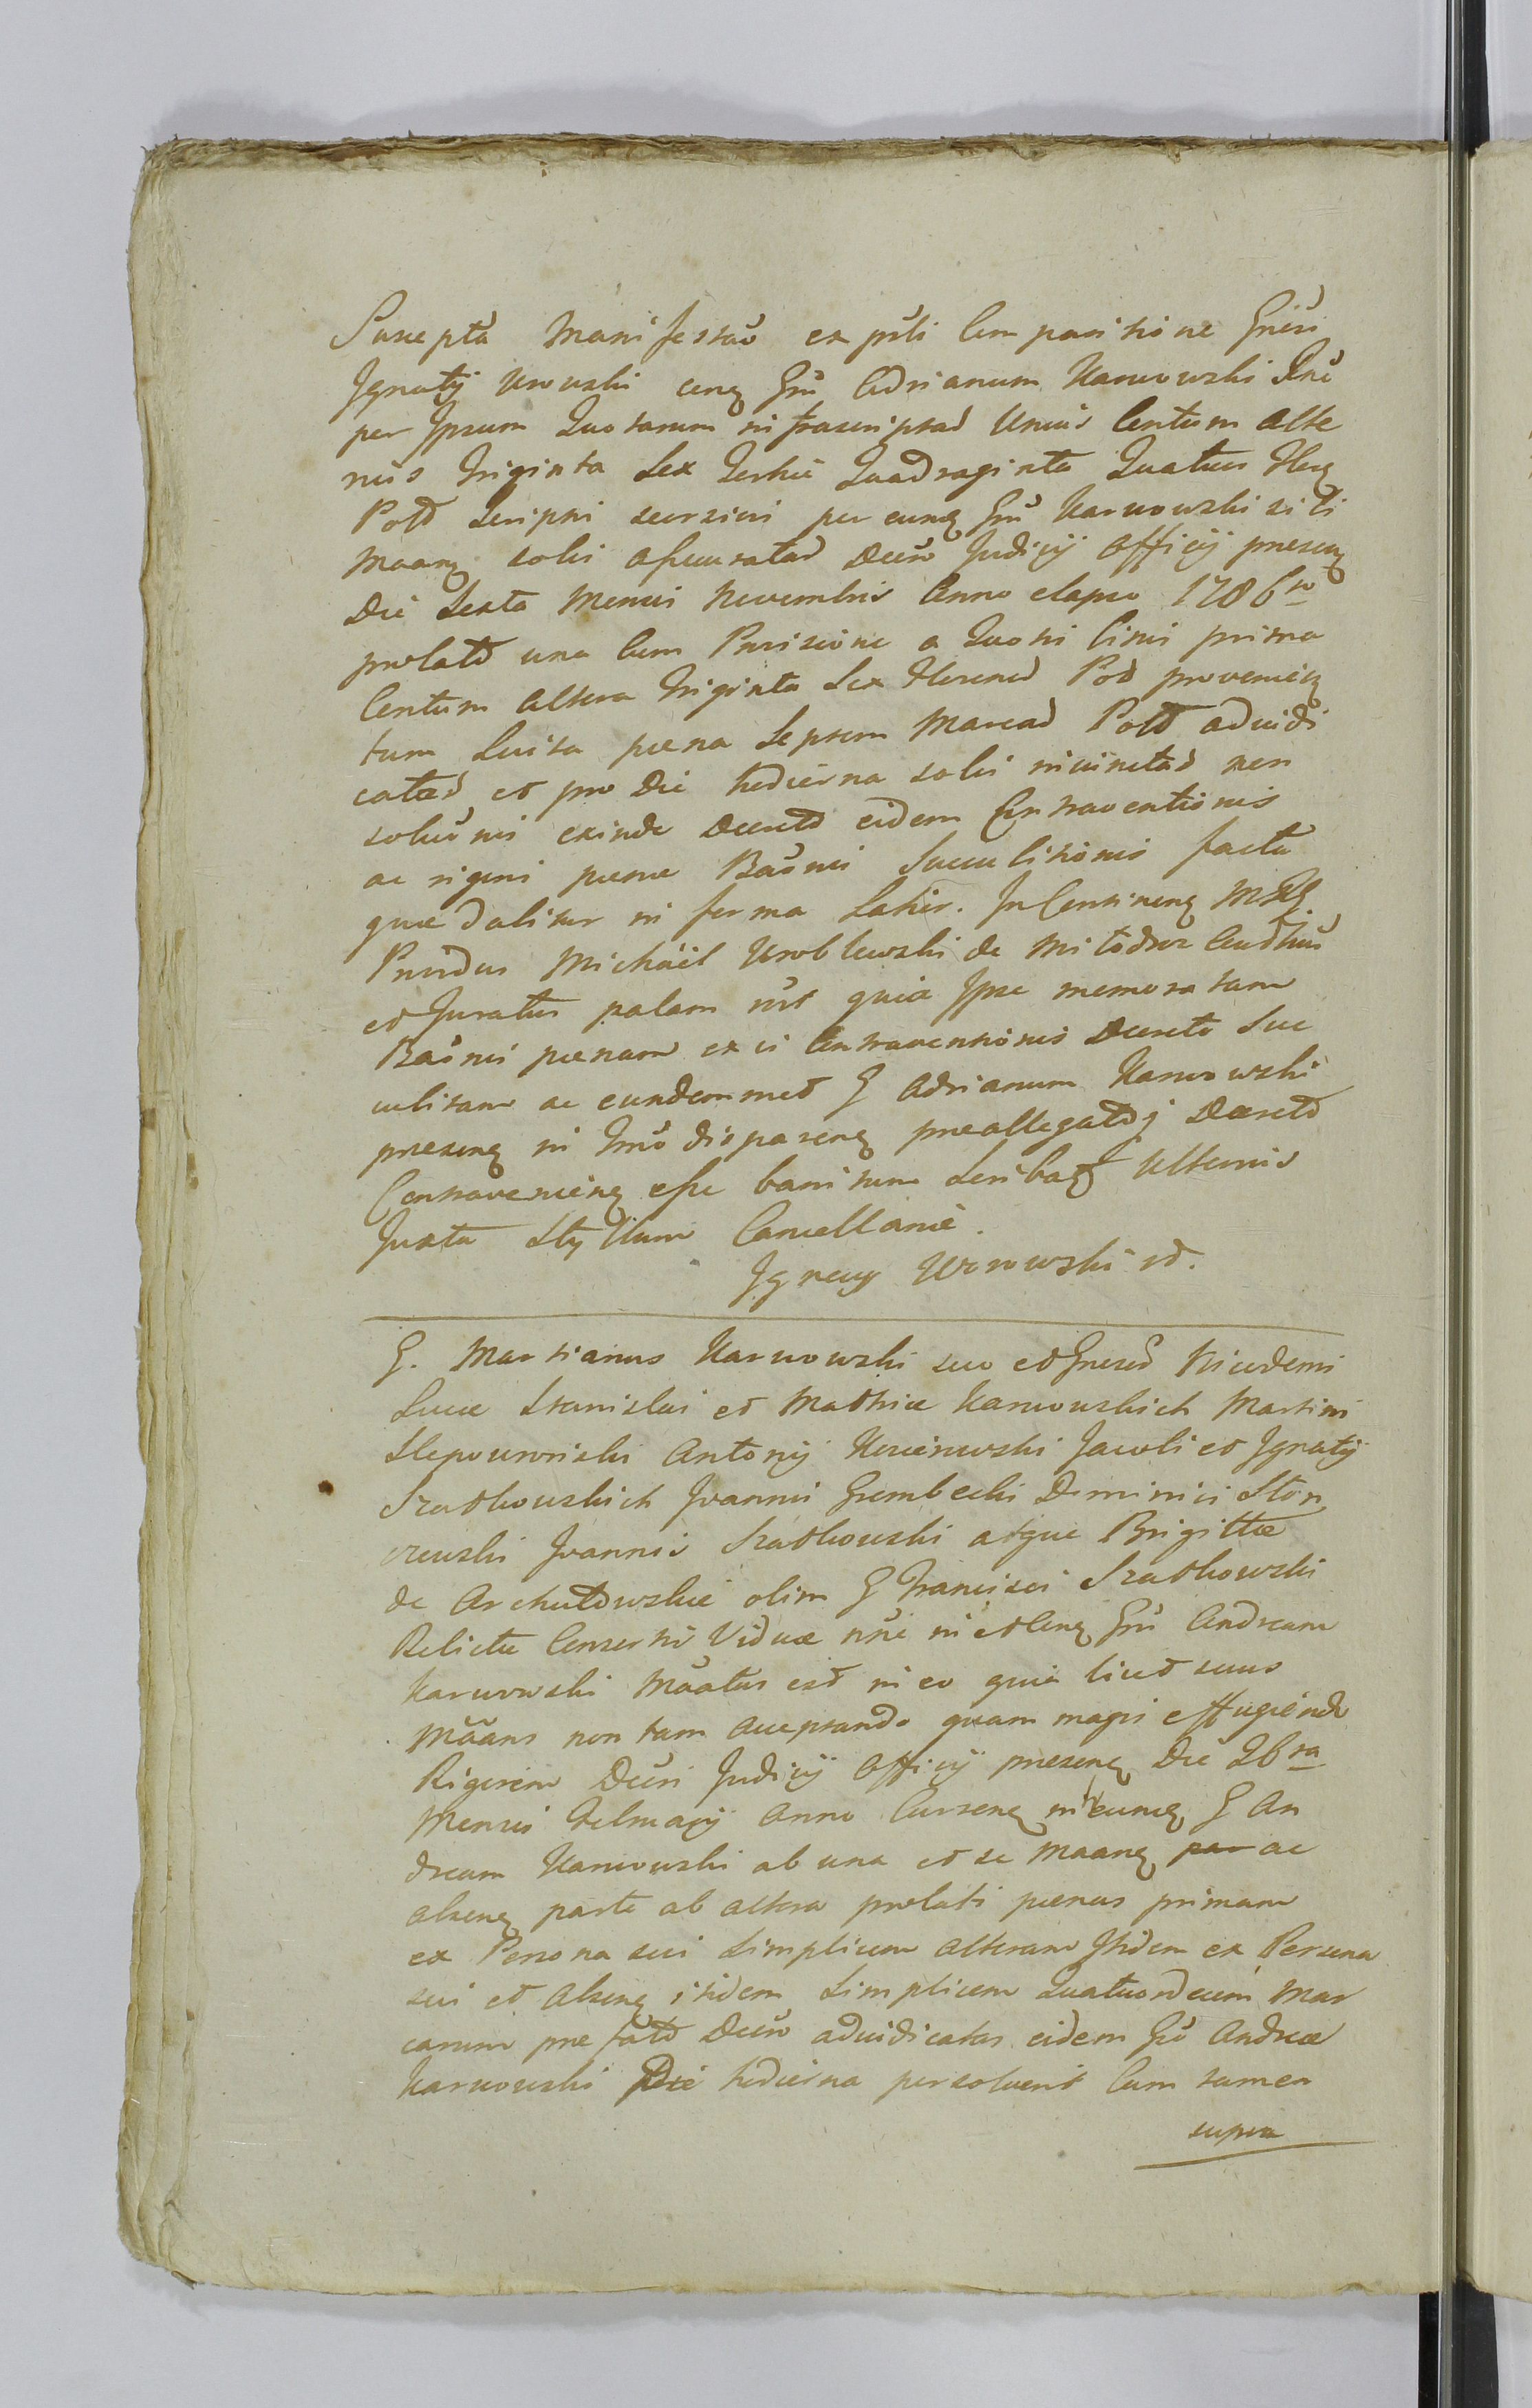 Suscepta Manifestaō ex prśti Com parisione Gnēsi
Ignatij Wrowski cenq Grū Adrianum Karwowski
per Ipsum Quotarum infrascriptad Unius Centum Alte
rius Triginta Sex Tertiæ Quadraginta Quatuor flor
Potd Scripti seorsivi per eunq Grū Karwowski sibi
Maanq solvi Decrō Judicij Officij presenq
Die Sexta Mensis Novembris Anno elapso 1786to
prolatd una Cum a Quoti prima
Centum Altera Triginta Sex Florened Pod
tum Luita pœna Septem Marcad Potd adiudi
catad et pro Die hodierna solvi non
solu͠nis exinde Decretd eidem Contraventionis
ac rigori pœnæ Ban̄nis Succubitionis facta
quæ dabitur in forma Latiori. In
Prvidus Michäel Wroblewski de
et Juratus palam quia Ipse memoratam
Ban̄nis pœnam ex vi Contraventionis Decreto Suc
cubitam ac eundemmet G Adrianum Karwowski
presenq in disparenq preallegatdq Decretd
Contravenienq esse banitum Ulterius
Juxta Styllum Cancellariæ.
Ignacy Wrowski
G. Martianus Karwowski suo et Gnesrd Nicodemi
Lucæ Stanislai et Mathiæ Karwowskich Martini
Slepowronski Antonij Jacobi et Ignatij
Szadkowskich Joannis Grembecki Dominici
Joannis Szadkowski atque Brigittæ
de Archutowskie olim G Francisci Szadkowski
Relictæ Consortis Viduæ nn̄e in et Conq Grū Andream
Karwowski Māatus est in eo quia licet suus
Māans non tam acceptando quam magis effugiendo
Rigorem Decri Judicij Officij presenq Die 26ta
Mensis Februarij Anno Currenq in eunq G An
dream Karwowski ab una et se Maanq par ac
alienq parte ab altera prolati pœnas primam
ex Persona sui Simplicem alteram Itidem ex Persona
sui et Alienq itidem Simplicem Quatuordecim Mar
carum prefatd Decro adiudicatas eidem Grō Andreæ
Karwowski Die hodierna persolverit Cum tamen
supra